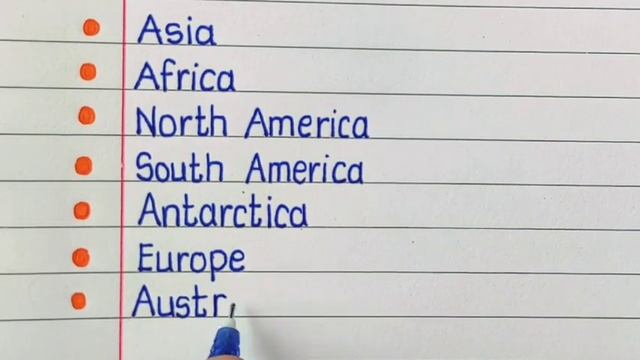 Asia
Africa
North America
South America
Antarctica
Europe
Austr